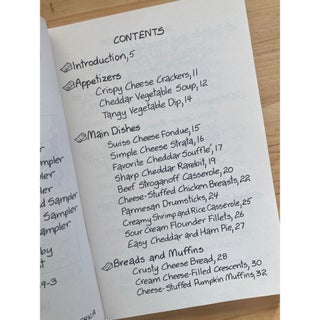 CONTENTS
Introduction, 5
Appetizers
Crispy Cheese Crackers, 11
Cheddar Vegetable Soup, 12
Tangy Vegetable Dip, 14
Main Dishes
Swiss Cheese Fondue, 15
Simple Cheese Strata, 16
Favorite Cheddar Souffle', 17
Sharp Cheddar Rarebit, 19
Beef Stroganoff Casserole, 20
Cheese-Stuffed Chicken Breasts, 22
Parmesan Drumsticks, 24
Creamy Shrimp and Rice Casserole, 25
Sour Cream Flounder Fillets, 26
Easy Cheddar and Ham Pie, 27
Breads and Muffins
Crusty Cheese Bread, 28
Cream Cheese-Filled Crescents, 30
Cheese-Stuffed Pumpkin Muffins, 32
ampler
Sampler
Sampler
by
9-3